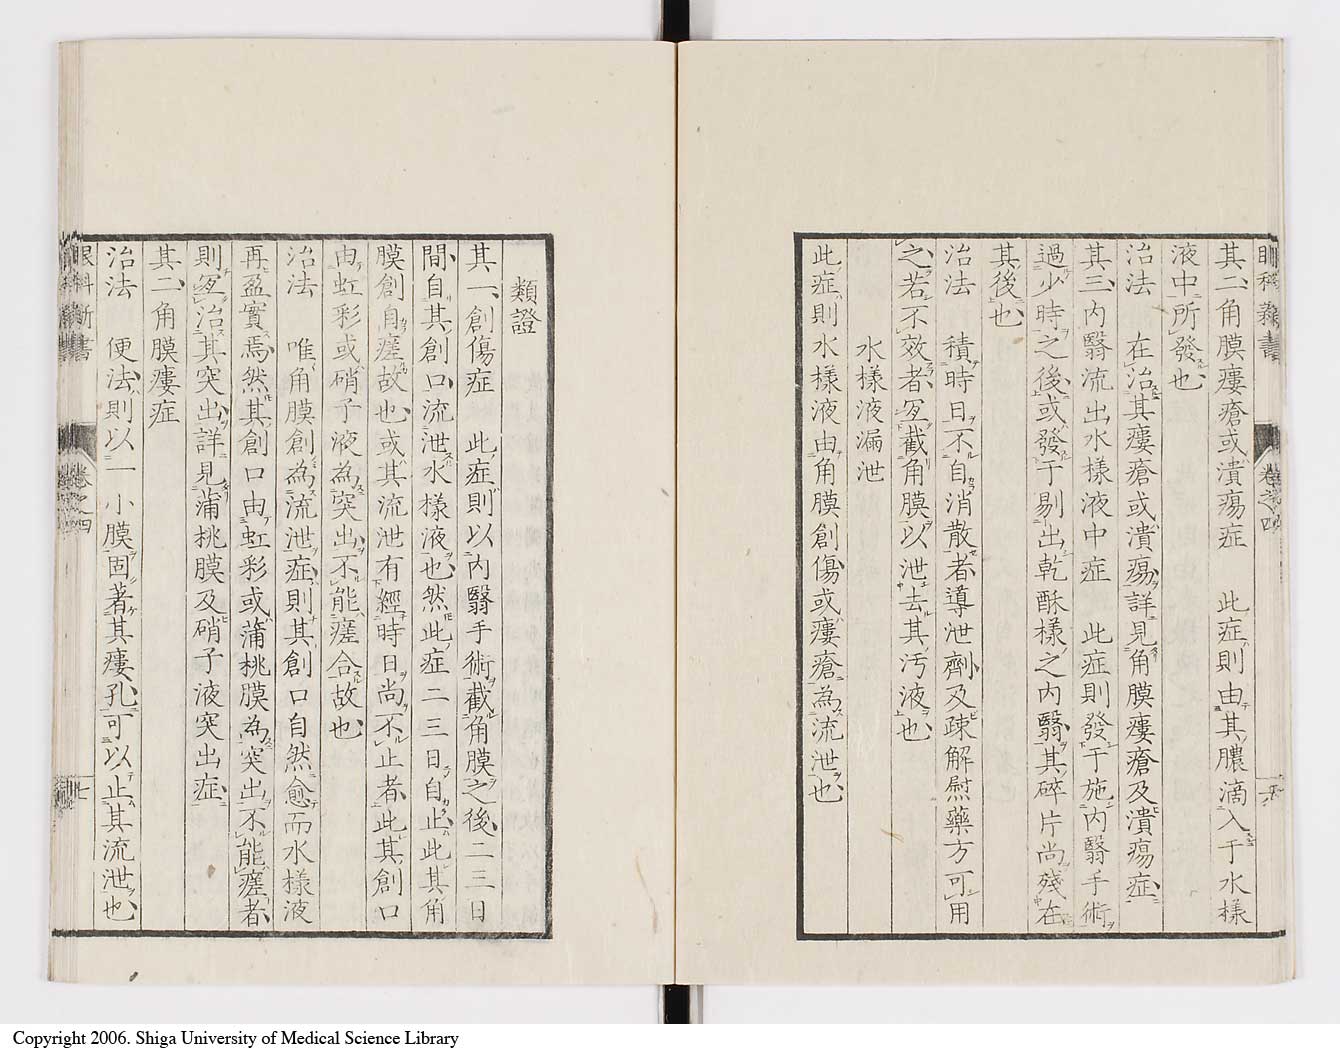 其二、角膜瘻瘡或潰瘍症　此症則由其膿滴入于水様
液中所發也
治法　在治其瘻瘡或潰瘍、詳見角膜瘻瘡及潰瘍症、
其三、内翳流出水様液中症　此症則發于施内翳手術
過少時之後、或發于剔出乾酥様之内翳、其碎片尚殘在
其後也
治法　積時日不自消散者、導泄劑及疎解熨藥方可用
之、若不效者、宜截角膜以泄去其汚液也
水様液漏泄
此症則水様液由角膜創傷或瘻瘡為流泄也
眼科新書
卷之四
類證
其一、創傷症　此症則以内翳手術截角膜之後二三日
間、自其創口流泄水様液也、然此症二三日自止、此其角
膜創自瘥故也、或其流泄有經時日尚不止者、此其創口
由虹彩或硝子液為突出、不能瘥合故也
治法　唯角膜創為流泄症、則其創口自然愈而水様液
再盈實焉、然其創口由虹彩或蒲桃膜為突出不能瘥者、
則宜治其突出、詳見蒲桃膜及硝子液突出症、
其二、角膜瘻症
治法　便法則以一小膜固著其瘻孔、可以止其流泄也
眼科新書
卷之四
十七
Copyright 2006. Shiga University of Medical Science Library